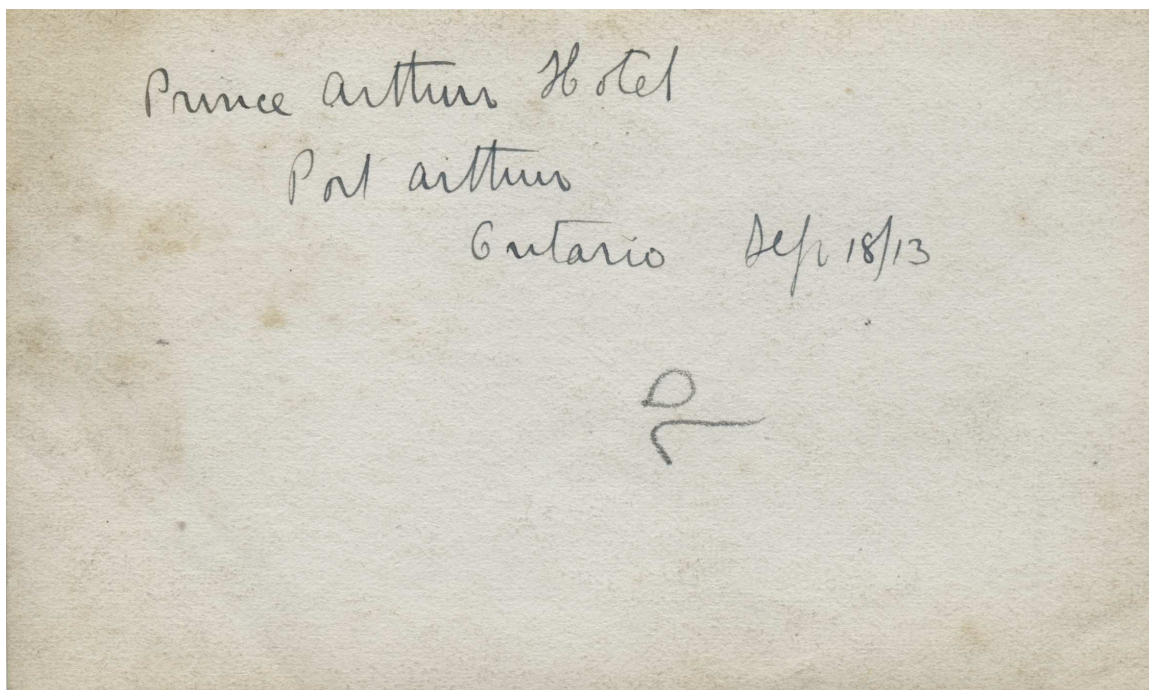 Prince Arthur Hotel
Port Arthur
Ontario Sep 18/13